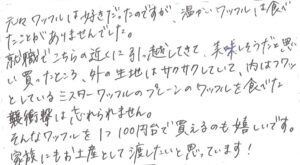 元々ワッフルは好きだったのですが、温かいワッフルは食べ
たことがありませんでした。
就職でこちらの近くに引っ越してきて、美味しそうだと思
い買ったところ、外の生地はサクサクしていて、内はフワッ
としているミスターワッフルのプレーンのワッフルを食べた
衝撃は忘れられません。
そんなワッフルを1つ100円台で買えるのも嬉しいです。
家族にもお土産として渡したいと思っています!